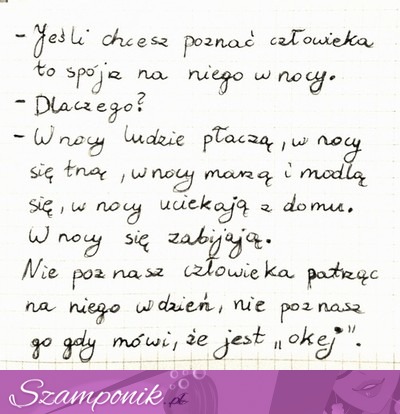 - Jeśli chcesz poznać człowieka
to spójrz na niego w nocy.
- Dlaczego?
- W nocy ludzie płaczą, w nocy
się tną, w nocy marzą i modlą
się, w nocy uciekają z domu.
W nocy się zabijają.
Nie poznasz człowieka patrząc
na niego w dzień, nie poznasz
go gdy mówi, że jest „okej".
Szamponik.pl